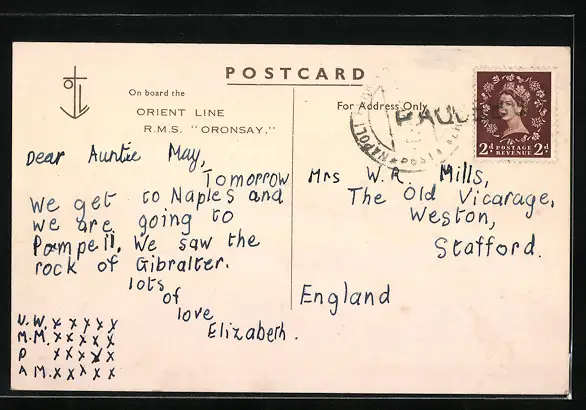 POSTCARD
On board the
ORIENT LINE
R.M.S. "ORONSAY."
For Address Only
NAPOLI
POSTA
PAQUE
2d POSTAGE REVENUE 2d
Dear Auntie May,
Tomorrow
we get to Naples and
we are going to
Pompell. We saw the
rock of Gibralter.
lots
of
love
Elizabeth.
U.W. x x x x x
M.M. x x x x x
D x x x x x
A M. x x x x x
Mrs W. R. Mills,
The Old Vicarage,
Weston,
Stafford.
England